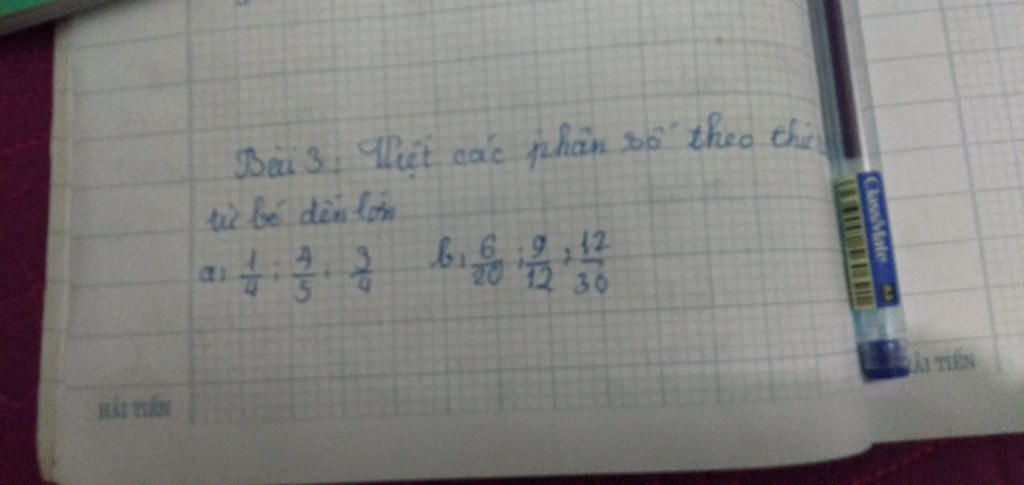 Bài 3: Viết các phân số theo thứ
từ bé đến lớn
a, 1/4 ; 4/5 . 3/4 b, 6/20 ; 9/12 ; 12/30
ClassMate
HẢI TIẾN
HẢI TIẾN